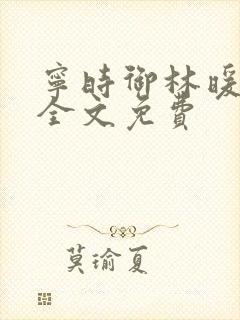 寧時御林暖
全文免費
莫瑜夏